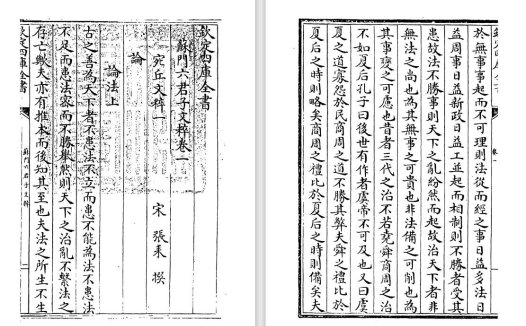 欽定四庫全書
蘇門六君子文粹卷一
宋 張耒 撰
宛丘文粹一
論
論法上
古之善為天下者不患法不立而患不能為法不患法
不足而患法密而不勝舉然則天下之治亂不繫法之
存亡歟夫亦有推本而後知其至也夫法之所生不生
欽定四庫全書
蘇門六君子文粹
於無事事起而不可理則法從而經之事日益多法日
益周事日益新政日益工並起而相制則不勝者受其
患故法不勝事則天下之亂紛然而起故治天下者非
無法之尚也為其無事之可貴也非法備之可削也為
其事變之可慮也昔者三代之治不若堯舜商周之治
不如夏后孔子曰後世有作者虞帝不可及也又曰虞
夏之道寡怨於民商周之道不勝其弊夫舜之禮比於
夏后之時則略矣商周之禮比於夏后之時則備矣夫